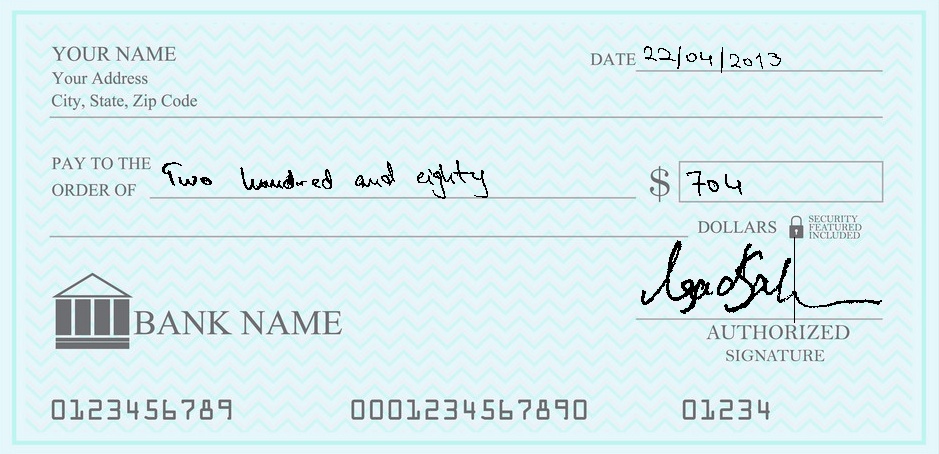 YOUR NAME
DATE 22/04/2013
Your Address
City, State, Zip Code
PAY TO THE
ORDER OF Two hundred and eighty $ 704
DOLLARS SECURITY
FEATURED
INCLUDED
BANK NAME
AUTHORIZED
SIGNATURE
0123456789 0001234567890 01234